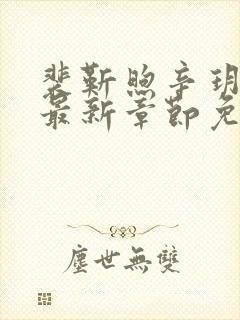 裴靳煦辛玥
最新章節免
塵世無雙